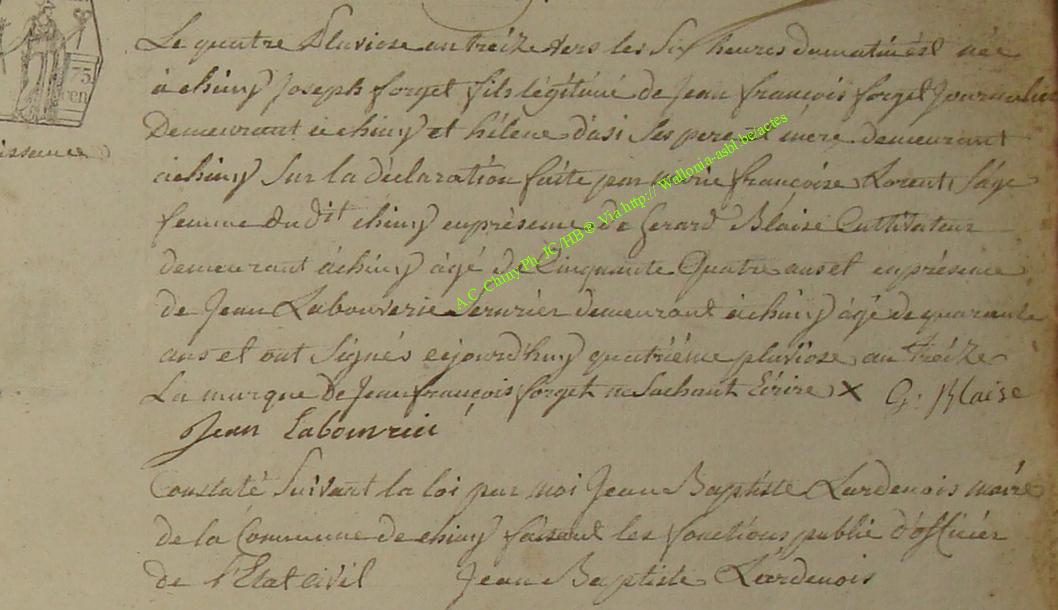 Le quatre Pluviose an treize vers les Six heures du matin est née
à chiny Joseph forget fils légitimé de Jean françois forget Journalier
Demeurant a chiny et hélene dasi ses pere et mere demeurant
à chiny Sur la déclaration faite par Marie françoise Lorent Sage
femme dudit chiny en présence de Gerard Blaise Cultivateur
demeurant à chiny agé de Cinquante Quatre ans et en présence
de Jean Labouverie Serurier demeurant à chiny agé de quarante
ans et ont Signés cejourd'huy quatriéme pluviose an treize
La marque De Jean françois forget ne Sachant Ecrire X G: Blaise
Jean Labouvrié
Constaté Suivant la loi par moi Jean Baptiste Lardenois maire
de la Commune de chiny faisant les fonctions public d'officier
de l'Etat civil Jean Baptiste Lardenois
75
cen
issance
A.C. Chiny Ph. JC/HB ® Via http:// Wallonia-asbl.be/actes